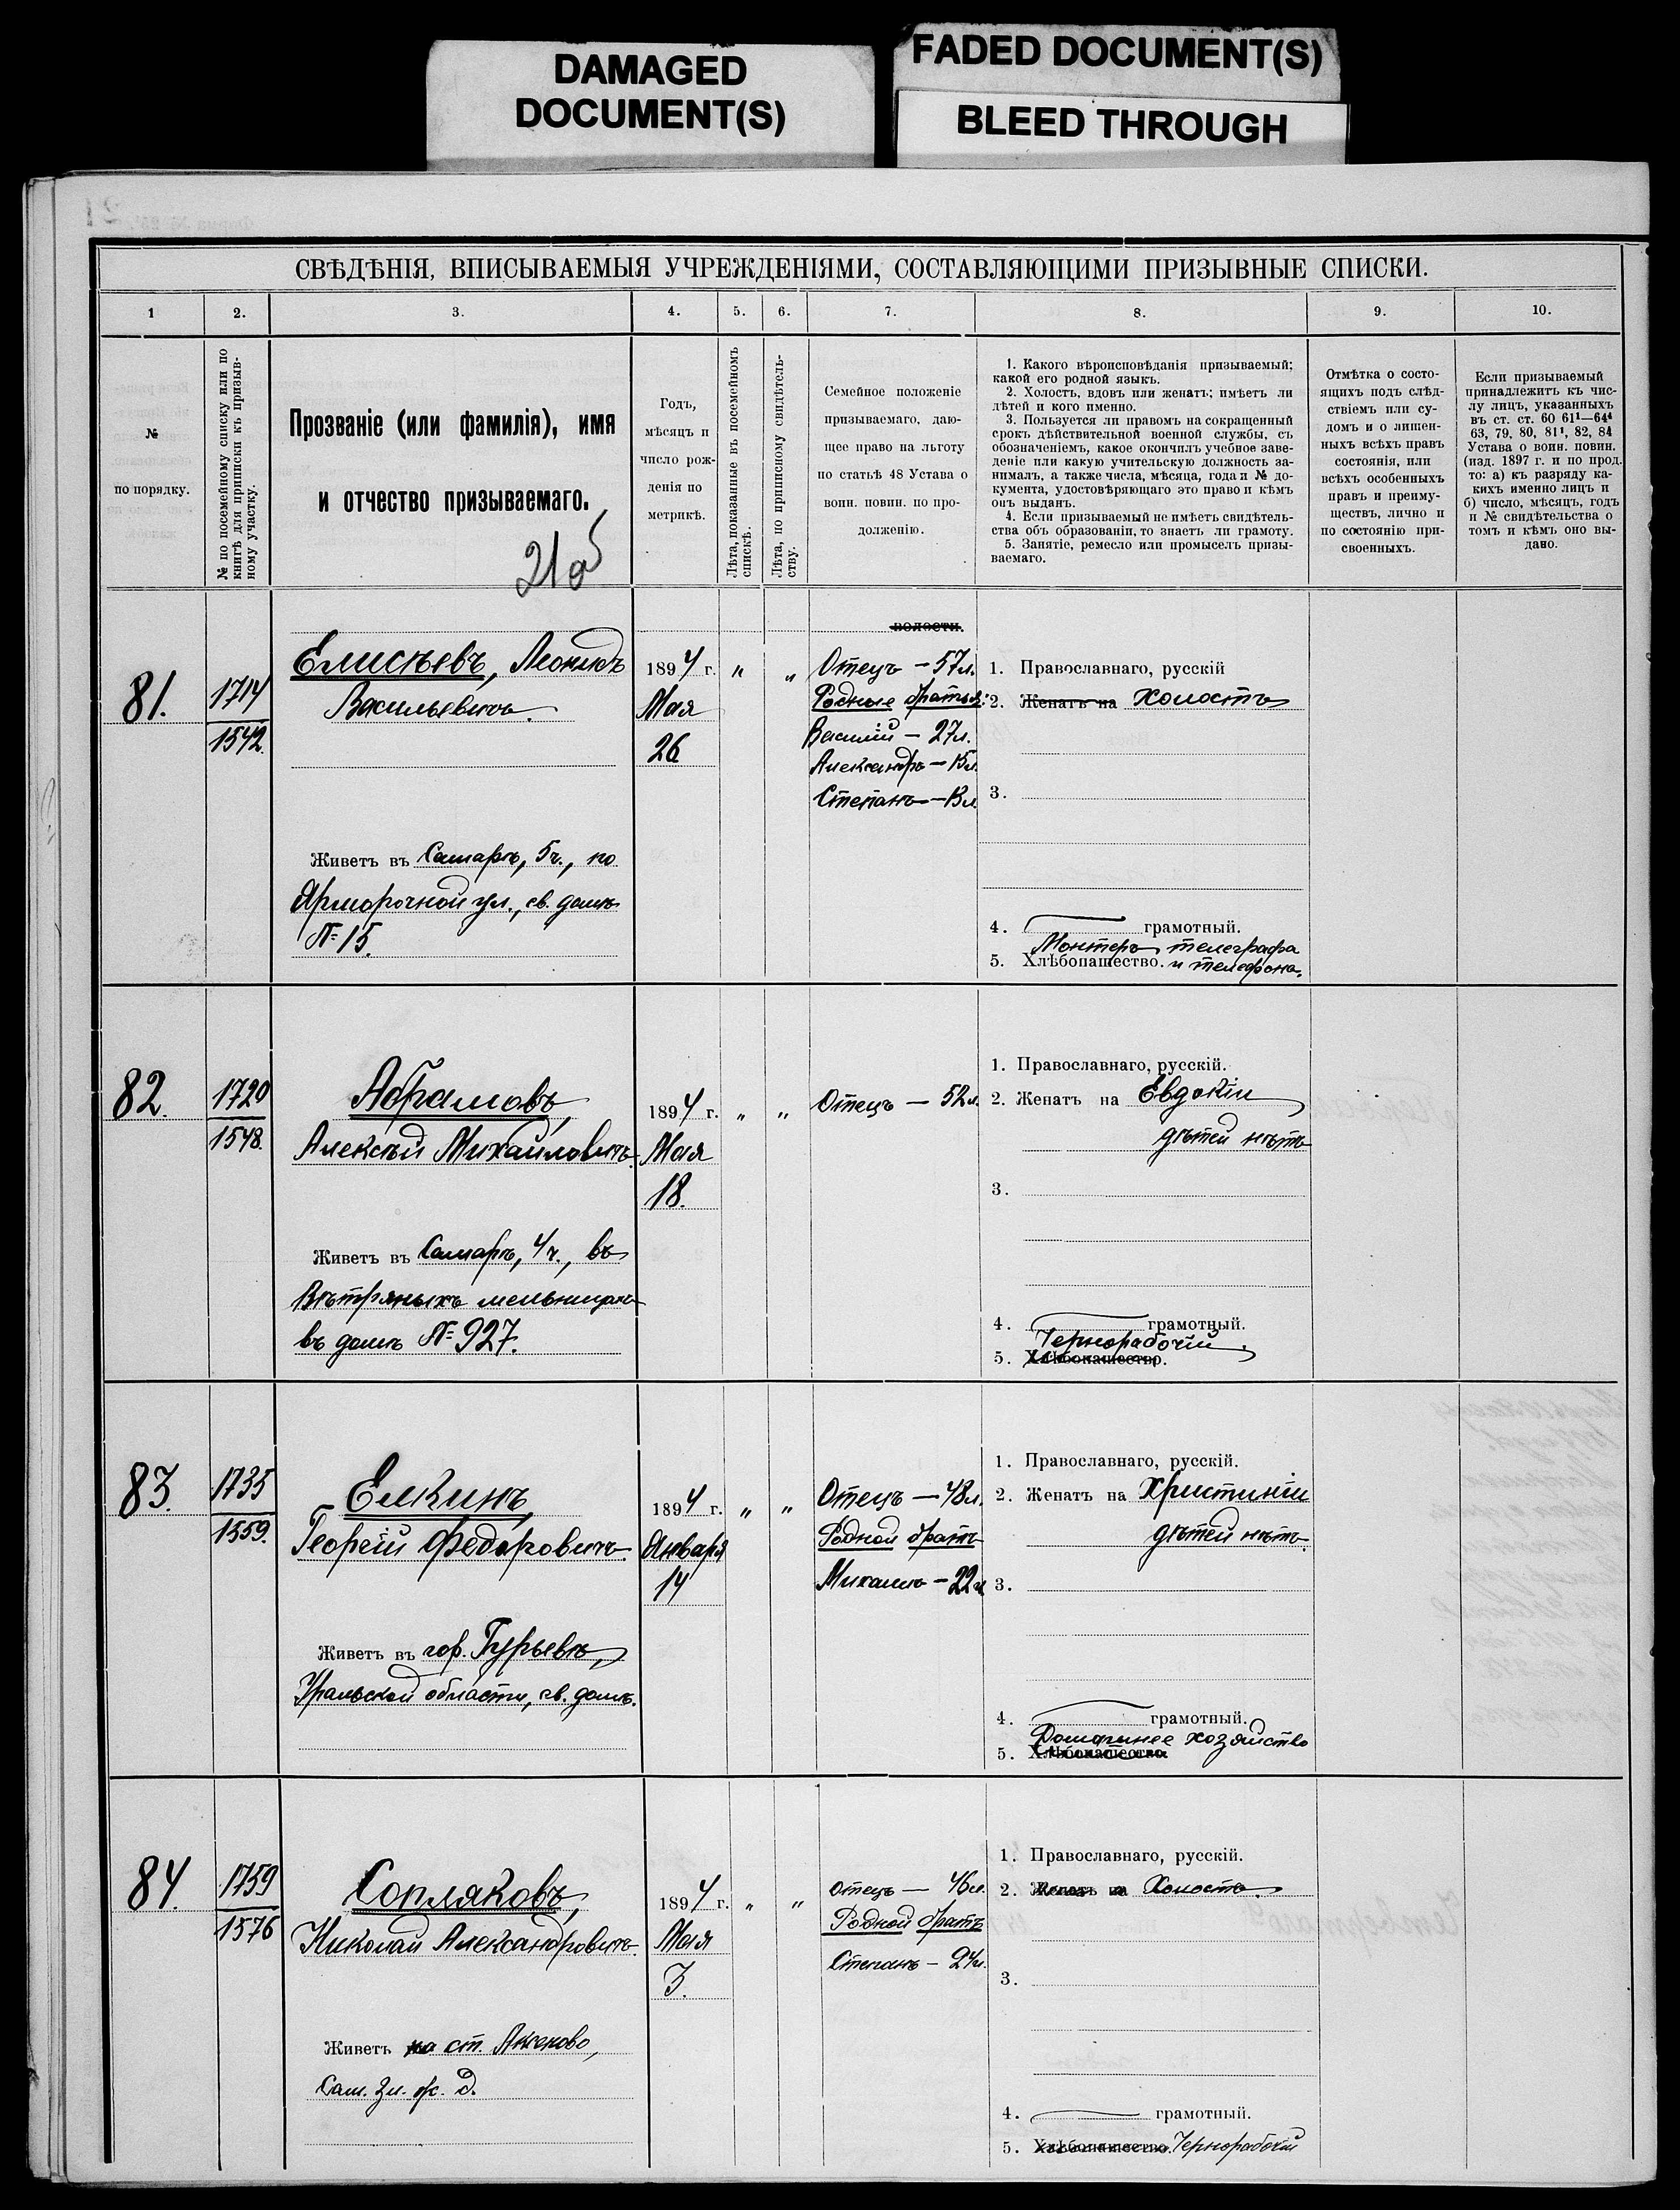 DAMAGED
DOCUMENT(S)
FADED DOCUMENT(S)
BLEED THROUGH
СВѢДѢНІЯ, ВПИСЫВАЕМЫЯ УЧРЕЖДЕНІЯМИ, СОСТАВЛЯЮЩИМИ ПРИЗЫВНЫЕ СПИСКИ.
1
2.
3.
4.
5.
6.
7.
8.
9.
10.
№
по порядку.
№ по посемейному списку или по
книгѣ для приписки къ призыв-
ному участку.
Прозваніе (или фамилія), имя
и отчество призываемаго.
21об
Годъ,
мѣсяцъ и
число рож-
денія по
метрикѣ.
Лѣта, показанные въ посемейномъ
спискѣ.
Лѣта, по приписному свидѣтель-
ству.
Семейное положеніе
призываемаго, даю-
щее право на льготу
по статьѣ 48 Устава о
воин. повин. по про-
долженію.
1. Какого вѣроисповѣданія призываемый;
какой его родной языкъ.
2. Холостъ, вдовъ или женатъ; имѣетъ ли
дѣтей и кого именно.
3. Пользуется ли правомъ на сокращенный
срокъ дѣйствительной военной службы, съ
обозначеніемъ, какое окончилъ учебное заве-
деніе или какую учительскую должность за-
нималъ, а также числа, мѣсяца, года и № до-
кумента, удостовѣряющаго это право и кѣмъ
онъ выданъ.
4. Если призываемый не имѣетъ свидѣтель-
ства объ образованіи, то знаетъ ли грамоту.
5. Занятіе, ремесло или промыселъ призы-
ваемаго.
Отмѣтка о состо-
ящихъ подъ слѣд-
ствіемъ или су-
домъ и о лишен-
ныхъ всѣхъ правъ
состоянія, или
всѣхъ особенныхъ
правъ и преиму-
ществъ, лично и
по состоянію при-
своенныхъ.
Если призываемый
принадлежитъ къ чис-
лу лицъ, указанныхъ
въ ст. ст. 60 61¹—64⁴
63, 79, 80, 81¹, 82, 84
Устава о воин. повин.
(изд. 1897 г. и по прод.
то: а) къ разряду ка-
кихъ именно лицъ и
б) число, мѣсяцъ, годъ
и № свидѣтельства о
томъ и кѣмъ оно вы-
дано.
81.
1714
1542.
Елисѣевъ, Леонидъ
Васильевичъ.
Живетъ въ Самарѣ, 5 ч., по
Ярморочной ул., св. домъ
№ 15.
1894 г.
Мая
26
"
"
волости.
Отецъ — 57 л.
Родные братья:
Василій — 27 л.
Александръ — 15 л.
Степанъ — 13 л.
1. Православнаго, русскій
2. Женатъ на Холостъ
3.
4. грамотный.
Монтеръ телеграфа
5. Хлѣбопашество. и телефона.
82.
1720
1548.
Абрамовъ,
Алексѣй Михайловичъ.
Живетъ въ Самарѣ, 4 ч., въ
Вѣтряныхъ мельницахъ
въ домѣ № 927.
1894 г.
Мая
18.
"
"
Отецъ — 52 л.
1. Православнаго, русскій.
2. Женатъ на Евдокіи
дѣтей нѣтъ
3.
4. грамотный.
Чернорабочій.
5. Хлѣбопашество.
83.
1735
1559.
Елкинъ,
Георгій Федоровичъ.
Живетъ въ гор. Гурьевѣ,
Уральской области, св. домъ.
1894 г.
Января
14
"
"
Отецъ — 48 л.
Родной братъ
Михаилъ — 22 л.
1. Православнаго, русскій.
2. Женатъ на Христиніи
дѣтей нѣтъ.
3.
4. грамотный.
Домашнее хозяйство
5. Хлѣбопашество.
84.
1759
1576
Сопляковъ,
Николай Александровичъ.
Живетъ на ст. Аксаково,
Сам. Зл. ж. д.
1894 г.
Мая
3.
"
"
Отецъ — 46 л.
Родной братъ
Степанъ — 24 л.
1. Православнаго, русскій.
2. Женатъ на Холостъ.
3.
4. грамотный.
5. Хлѣбопашество. Чернорабочій